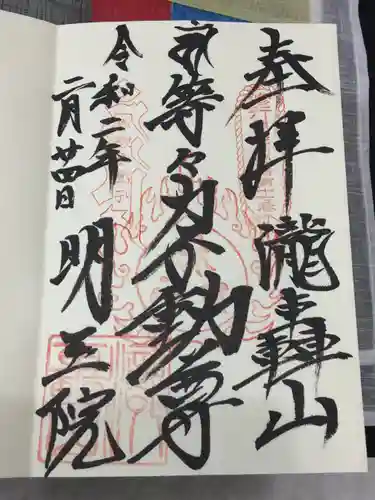 奉拝　瀧轟山
等々力不動尊
令和二年
二月廿四日
明王院